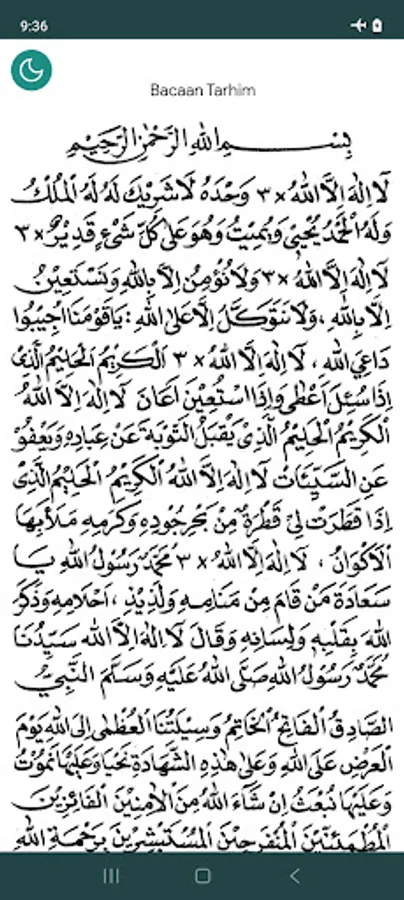 9:36
Bacaan Tarhim
بِسْمِ اللهِ الرَّحْمٰنِ الرَّحِيْمِ
لَا اِلٰهَ اِلَّا اللهُ ×٣ وَحْدَهُ لَا شَرِيْكَ لَهُ لَهُ الْمُلْكُ
وَلَهُ الْحَمْدُ يُحْيِيْ وَيُمِيْتُ وَهُوَ عَلٰى كُلِّ شَيْءٍ قَدِيْرٌ ×٣
لَا اِلٰهَ اِلَّا اللهُ ×٣ وَلَا نُؤْمِنُ اِلَّا بِاللهِ وَنَسْتَعِيْنُ
اِلَّا بِاللهِ ، وَلَا نَتَوَكَّلُ اِلَّا عَلَى اللهِ : يَا قَوْمَنَا اَجِيْبُوْا
دَاعِيَ اللهِ ، لَا اِلٰهَ اِلَّا اللهُ ×٣ اَلْكَرِيْمُ الْحَلِيْمُ الَّذِيْ
اِذَا سُئِلَ اَعْطٰى وَاِذَا اسْتُعِيْنَ اَعَانَ لَا اِلٰهَ اِلَّا اللهُ
الْكَرِيْمُ الْحَلِيْمُ الَّذِيْ يَقْبَلُ التَّوْبَةَ عَنْ عِبَادِهِ وَيَعْفُوْ
عَنِ السَّيِّئَاتِ لَا اِلٰهَ اِلَّا اللهُ الْكَرِيْمُ الْحَلِيْمُ الَّذِيْ
اِذَا قَطَرَتْ لِيْ قَطْرَةٌ مِنْ بَحْرِ جُوْدِهِ وَكَرَمِهِ مَلَأَ بِهَا
الْاَكْوَانُ ، لَا اِلٰهَ اِلَّا اللهُ ×٣ مُحَمَّدٌ رَسُوْلُ اللهِ يَا
سَعَادَةَ مَنْ قَامَ مِنْ مَنَامِهِ وَلَذِيْذِ ، اَحْلَامِهِ وَذَكَرَ
اللهَ بِقَلْبِهِ وَلِسَانِهِ وَقَالَ لَا اِلٰهَ اِلَّا اللهُ سَيِّدُنَا
مُحَمَّدٌ رَسُوْلُ اللهِ صَلَّى اللهُ عَلَيْهِ وَسَلَّمَ النَّبِيُّ
الصَّادِقُ الْفَاتِحُ الْخَاتِمُ وَسِيْلَتُنَا الْعُظْمٰى اِلَى اللهِ يَوْمَ
الْعَرْضِ عَلَى اللهِ وَعَلٰى هٰذِهِ الشَّهَادَةِ نَحْيَا وَعَلَيْهَا نَمُوْتُ
وَعَلَيْهَا نُبْعَثُ اِنْ شَآءَ اللهُ مِنَ الْاٰمِنِيْنَ الْفَائِزِيْنَ
الْمُطْمَئِنِّيْنَ الْمُتَفَرِّحِيْنَ الْمُسْتَبْشِرِيْنَ بِرَحْمَةِ اللهِ